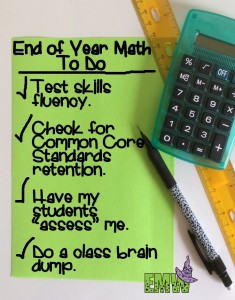 End of Year Math
To Do
Test skills
fluency.
Check for
Common Core
Standards
retention.
Have my
students
"assess" me.
Do a class brain
dump.
EMW
OFF
M-
M+
7
8
9
4
5
6
1
2
3
0